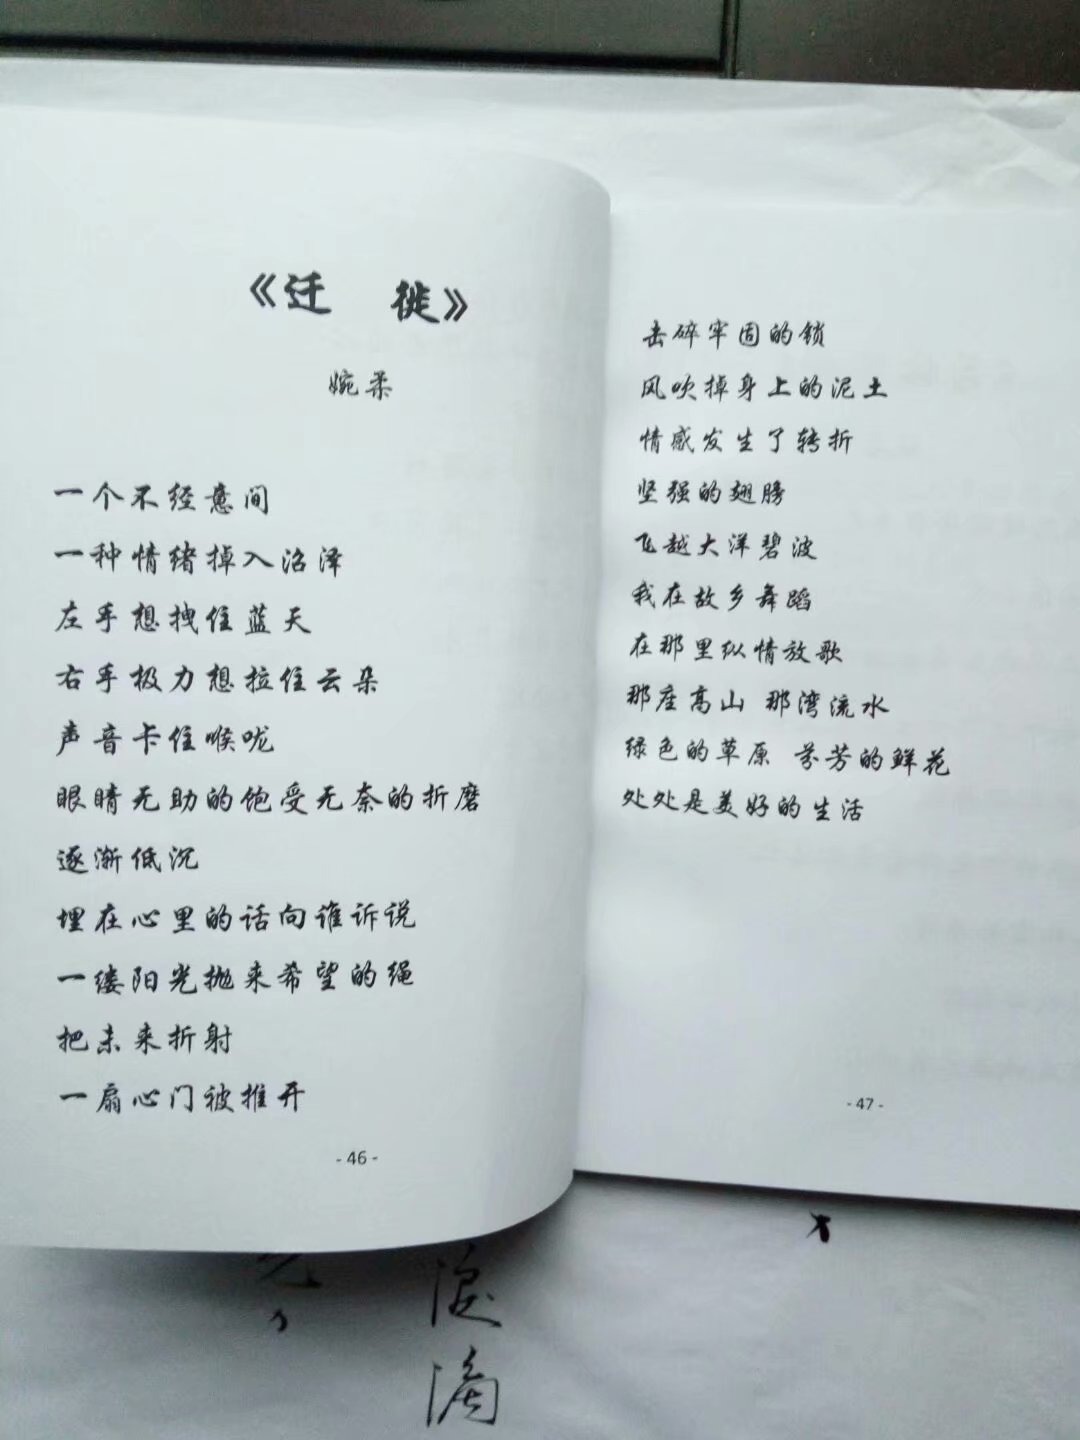 《迁 徙》
婉柔
一个不经意间
一种情绪掉入沼泽
左手想拽住蓝天
右手极力想拉住云朵
声音卡住喉咙
眼睛无助的饱受无奈的折磨
逐渐低沉
埋在心里的话向谁诉说
一缕阳光抛来希望的绳
把未来折射
一扇心门被推开
- 46 -
击碎牢固的锁
风吹掉身上的泥土
情感发生了转折
坚强的翅膀
飞越大洋碧波
我在故乡舞蹈
在那里纵情放歌
那座高山 那湾流水
绿色的草原 芬芳的鲜花
处处是美好的生活
- 47 -
滴